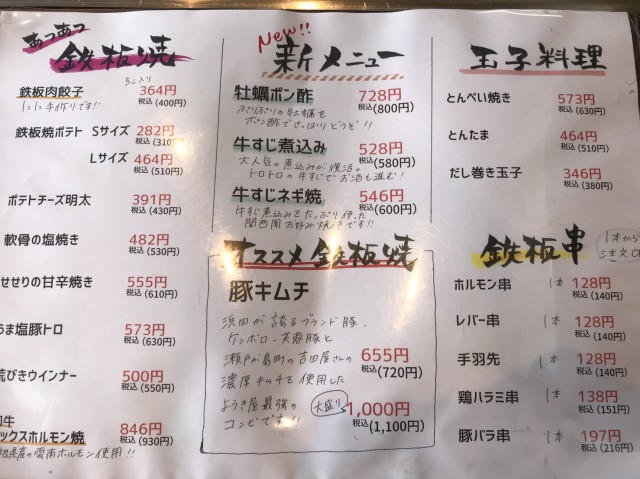 あつあつ
鉄板焼
5こ入り
鉄板肉餃子 364円
税込(400円)
1つ1つ手作りです!!
鉄板焼ポテト Sサイズ 282円
税込(310
Lサイズ 464円
税込(510円)
ポテトチーズ明太 391円
税込(430円)
軟骨の塩焼き 482円
税込(530円)
せせりの甘辛焼き 555円
税込(610円)
うま塩豚トロ 573円
税込(630円)
荒びきウインナー 500円
税込(550円)
和牛
ックスホルモン焼 846円
税込(930円)
根県産の雲南ホルモン使用!!
New!!
新メニュー
牡蠣ポン酢 728円
税込(800円)
ぷりぷりの牡蠣を
ポン酢でさっぱりどうぞ!!
牛すじ煮込み 528円
税込(580円)
大人気の煮込みが復活。
トロトロの牛すじでお酒も進む!
牛すじネギ焼 546円
税込(600円)
牛すじ煮込みをたっぷり使った
関西風お好み焼きです!!
オススメ鉄板焼
豚キムチ
浜田が誇るブランド豚、
ケンボロー芙蓉豚と
瀬戸が島町の吉田屋さんの
濃厚キムチを使用した
ようき屋最強の
コンビです!!
655円
税込(720円)
大盛り 1,000円
税込(1,100円)
玉子料理
とんぺい焼き 573円
税込(630円)
とんたま 464円
税込(510円)
だし巻き玉子 346円
税込(380円)
鉄板串
1本から
注文O
ホルモン串 1本 128円
税込(140円)
レバー串 1本 128円
税込(140円)
手羽先 1本 128円
税込(140円)
鶏ハラミ串 1本 138円
税込(151円)
豚バラ串 1本 197円
税込(216円)